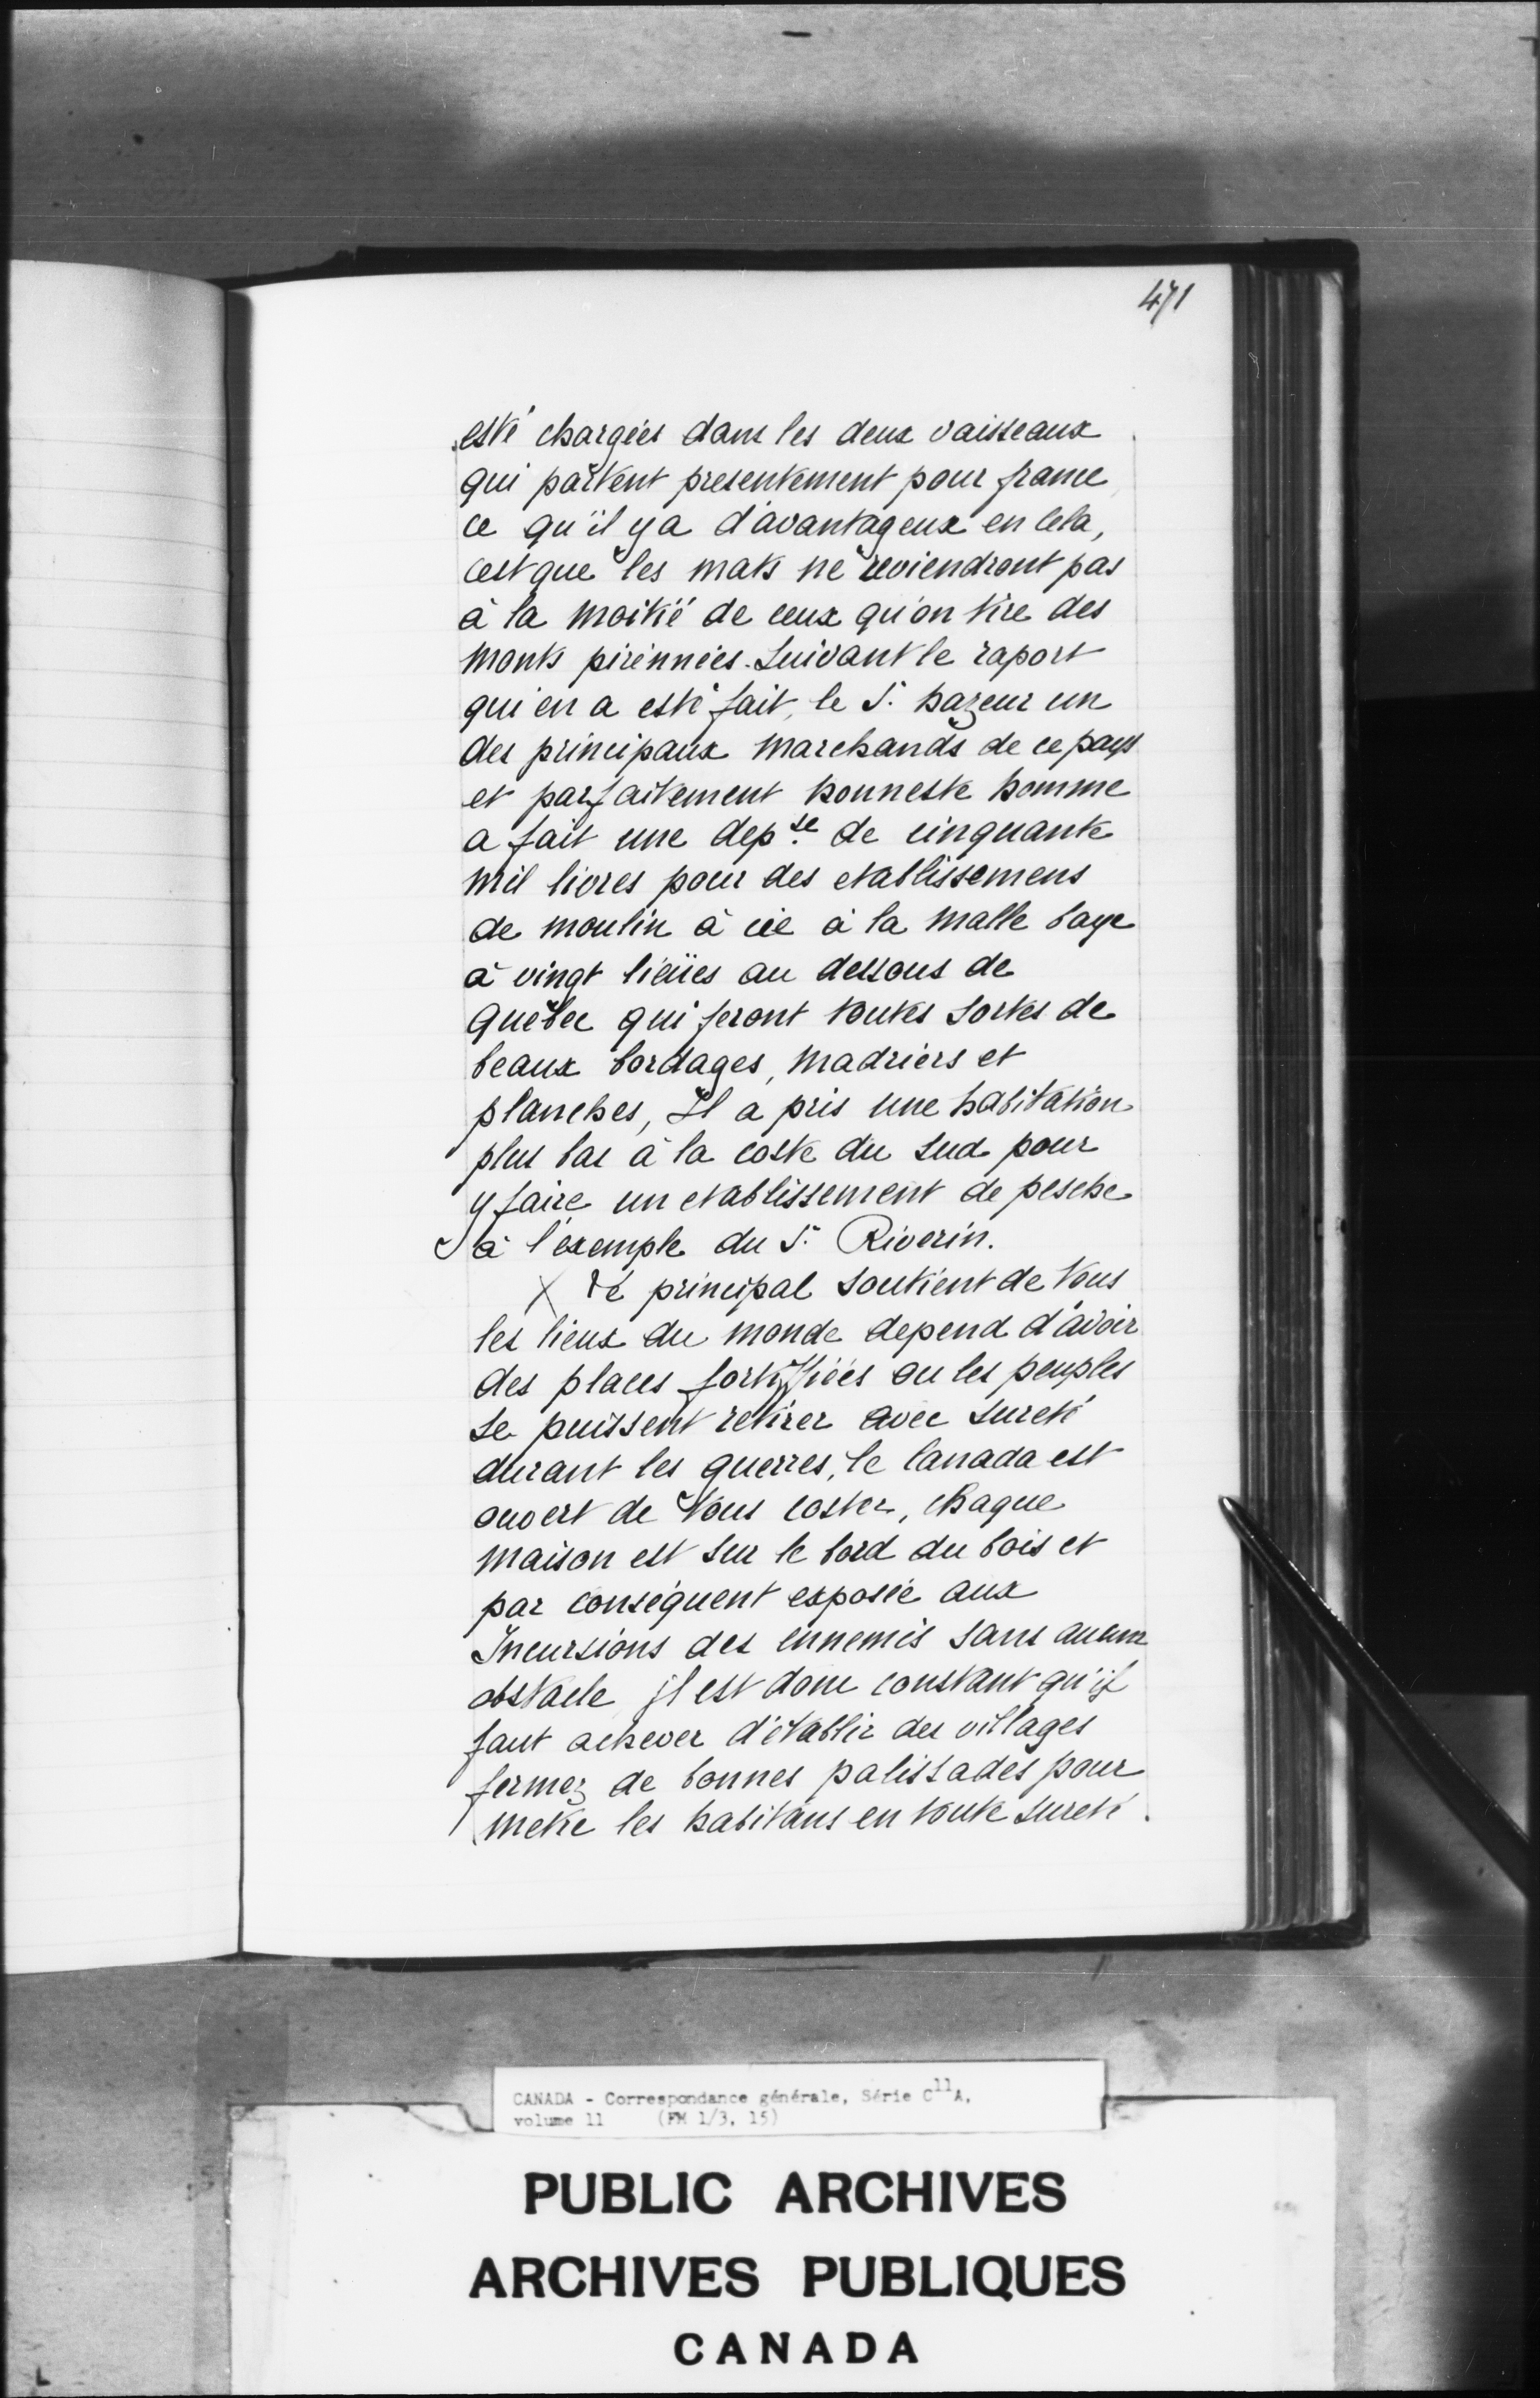 471
esté chargées dans les deux vaisseaux
qui partent presentement pour france
ce qu'il y a d'avantageux en cela,
cest que les mats ne reviendront pas
à la moitié de ceux qu'on tire des
monts pirénnées. Suivant le raport
qui en a esté fait, le Sr. hazeur un
des principaux marchands de ce pays
et parfaitement honneste homme
a fait une depse. de cinquante
mil livres pour des etablissemens
de moulin à cie à la malle baye
à vingt liëues au dessous de
Québec qui feront toutes sortes de
beaux bordages, madriers et
planches, Il a pris une habitation
plus bas à la coste du sud pour
y faire un etablissement de pesche
à l'éxemple du Sr. Riverin.
X Le principal soutient de tous
les lieux du monde depend d'avoir
des places fortiffiées ou les peuples
se puissent retirer avec sureté
durant les guerres, le Canada est
ouvert de tous costez, chaque
maison est sur le bord du bois et
par conséquent exposée aux
Incursions des ennemis sans aucun
obstacle jl est donc constant qu'il
faut achever d'établir des villages
fermez de bonnes palissades pour
metre les habitans en toute sureté.
CANADA - Correspondance générale, Série C11A,
volume 11 (FM 1/3, 15)
PUBLIC ARCHIVES
ARCHIVES PUBLIQUES
CANADA
L